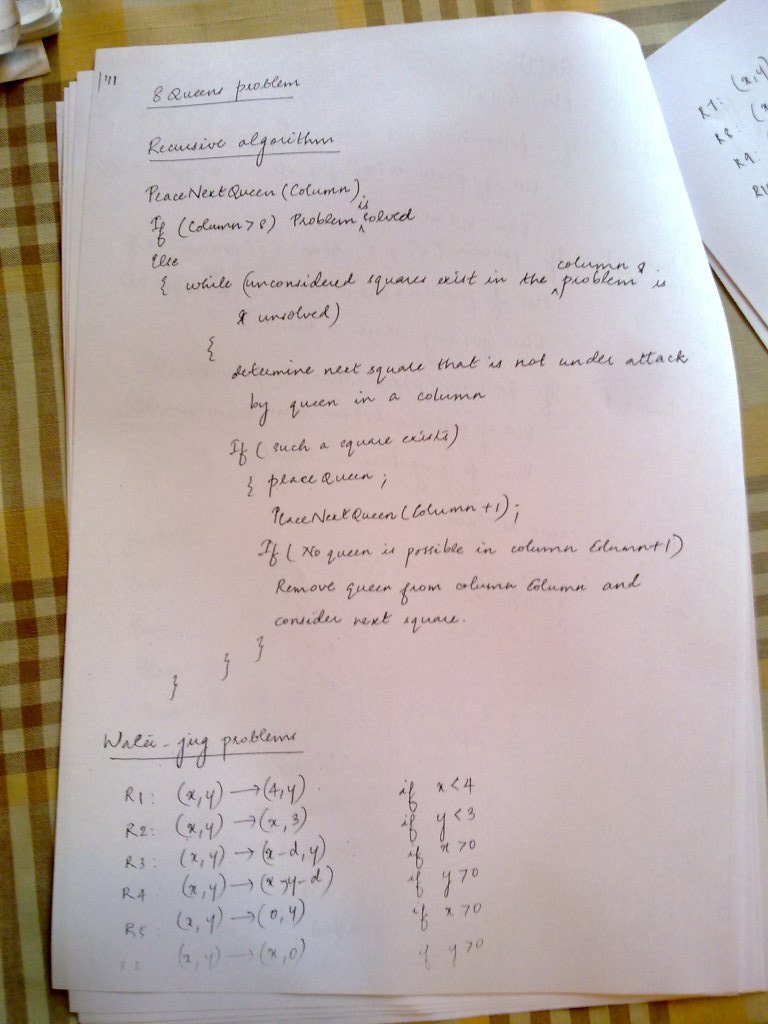 8 Queens problem
Recursive algorithm
PlaceNextQueen (Column)
If (Column > 8) Problem is solved
Else
{ while (unconsidered squares exist in the column & problem is
unsolved)
{
determine next square that is not under attack
by queen in a column
If ( such a square exists)
{ place Queen ;
PlaceNextQueen (Column +1);
If ( No queen is possible in column Column+1)
Remove queen from column Column and
consider next square.
}
}
}
Water-jug problems
R1: (x,y) → (4,y) if x<4
R2: (x,y) → (x,3) if y<3
R3: (x,y) → (x-d,y) if x>0
R4 (x,y) → (x,y-d) if y>0
R5: (x,y) → (0,y) if x>0
(x,y) → (x,0) if y>0
R7: (x,y)
R8: (x
R9: